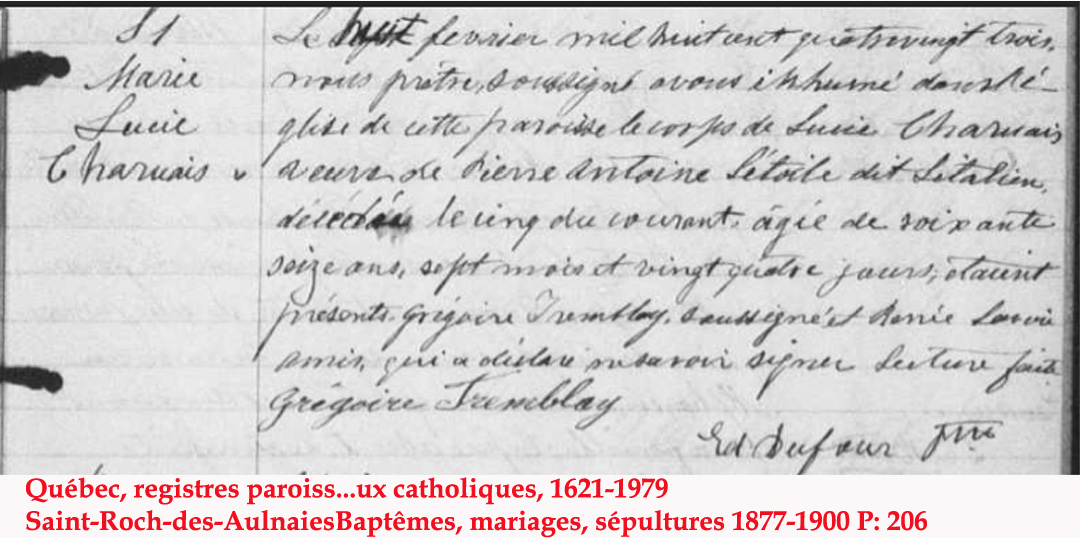 S1
Marie
Lucie
Charuais
Le sept fevrier mil huit cent quatrevingt trois,
nous prêtre, soussigné avons inhumé dans l'é-
glise de cette paroisse le corps de Lucie Charuais
veuve de Pierre Antoine Létoile dit Litalien,
décédée le cinq du courant, âgée de soixante
seize ans, sept mois et vingt quatre jours; étaient
présents. Grégoire Tremblay, soussigné et Lavoie
amis, qui a déclaré ne savoir signer Lecture faite
Grégoire Tremblay
Ed Dufour Ptre
Québec, registres paroiss...ux catholiques, 1621-1979
Saint-Roch-des-AulnaiesBaptêmes, mariages, sépultures 1877-1900 P: 206